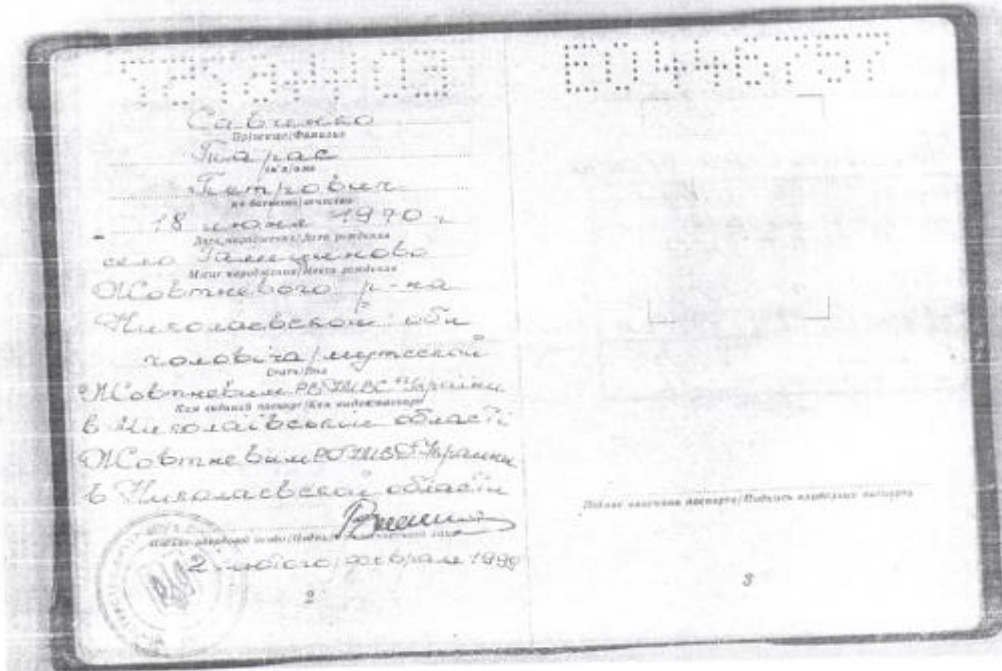 ЕО446757
Савченко
Прізвище/Фамилия
Тарас
Ім'я/имя
Петрович
по батькові/отчество
18 июня 1970 г
Дата народження/Дата рождения
село
Місце народження/Место рождения
Жовтневого р-на
Николаевской обл
чоловіча/мужской
Стать/Пол
Жовтневим РВ УМВС України
Ким виданий паспорт/Кем выдан паспорт
в Миколаївській області
Жовтневым РО УМВД Украины
в Николаевской области
2 лютого/февраля 1999
2
ЕО446757
Підпис власника паспорта/Подпись владельца паспорта
3